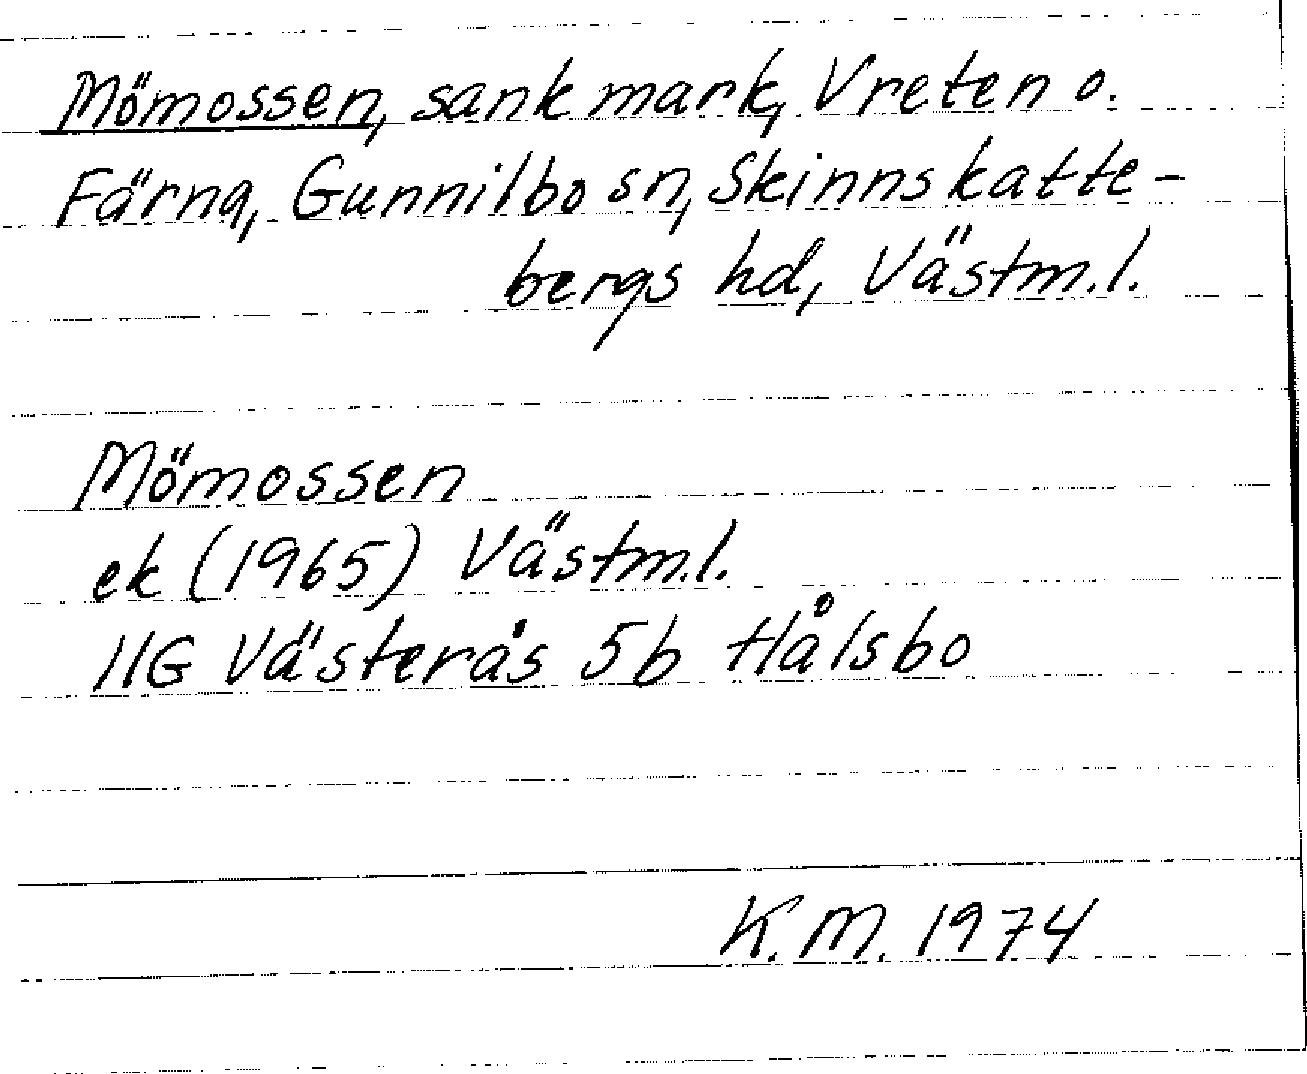 Mömossen, sank mark, Vreten o.
Färna, Gunnilbo sn, Skinnskatte-
bergs hd, Västm.l.
Mömossen
ek (1965) Västm.l.
11G Västerås 5b Hålsbo
K.M. 1974